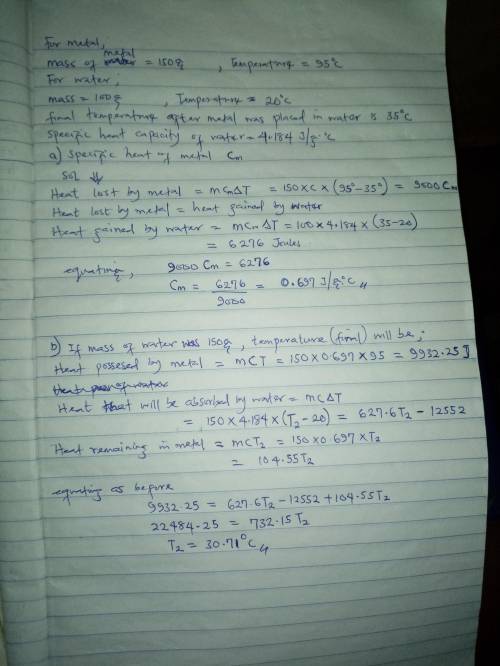 For metal,
mass of metal = 150g , Temperature = 95°C
For water;
mass = 100g , Temperature = 20°C
final temperature after metal was placed in water is 35°C
Specific heat capacity of water = 4.184 J/g.°C
a) Specific heat of metal Cm
Sol ↓
Heat lost by metal = mCmΔT = 150 x C x (95° - 35°) = 9000 Cm
Heat lost by metal = heat gained by water
Heat gained by water = mCwΔT = 100 x 4.184 x (35-20)
= 6276 Joules
equating, 9000 Cm = 6276
Cm = 6276/9000 = 0.697 J/g.°C
b) If mass of water was 150g, temperature (final) will be;
Heat possesed by metal = mCT = 150 x 0.697 x 95 = 9932.25 J
Heat that will be absorbed by water = mCΔT
= 150 x 4.184 x (T2 - 20) = 627.6T2 - 12552
Heat remaining in metal = mCT2 = 150 x 0.697 x T2
= 104.55T2
equating as before
9932.25 = 627.6T2 - 12552 + 104.55T2
22484.25 = 732.15T2
T2 = 30.71°C